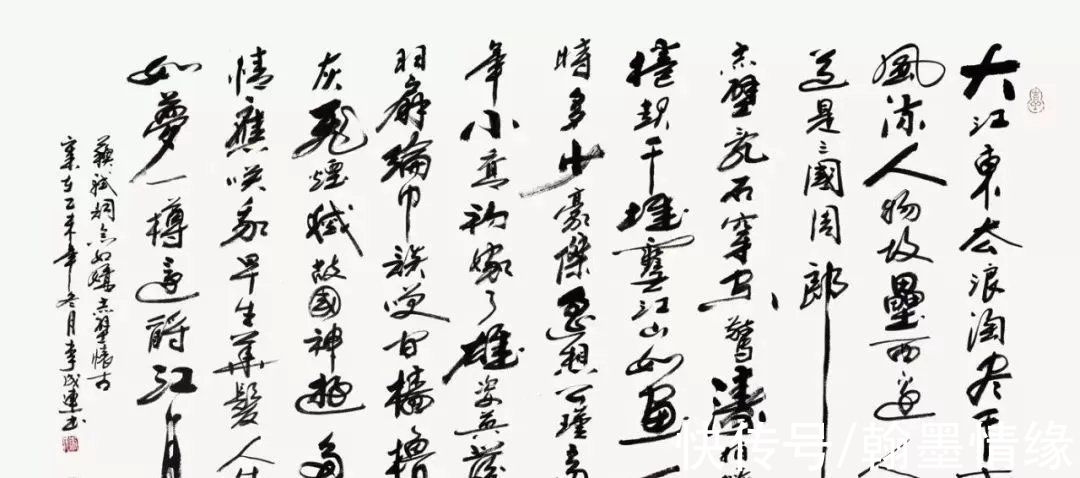 大江東去浪淘尽千
風流人物故壘西邊人
道是三國周郎
赤壁乱石穿空驚濤拍
捲起千堆雪江山如畫一
時多少豪傑遥想公瑾當
年小喬初嫁了雄姿英發
羽扇綸巾談笑间檣櫓
灰飛煙滅故國神遊多
情應笑我早生華髮人生
如夢一樽還酹江月
蘇軾詞念奴嬌赤壁懷古
歲在乙未年冬月李成連书
快传号/翰墨情缘